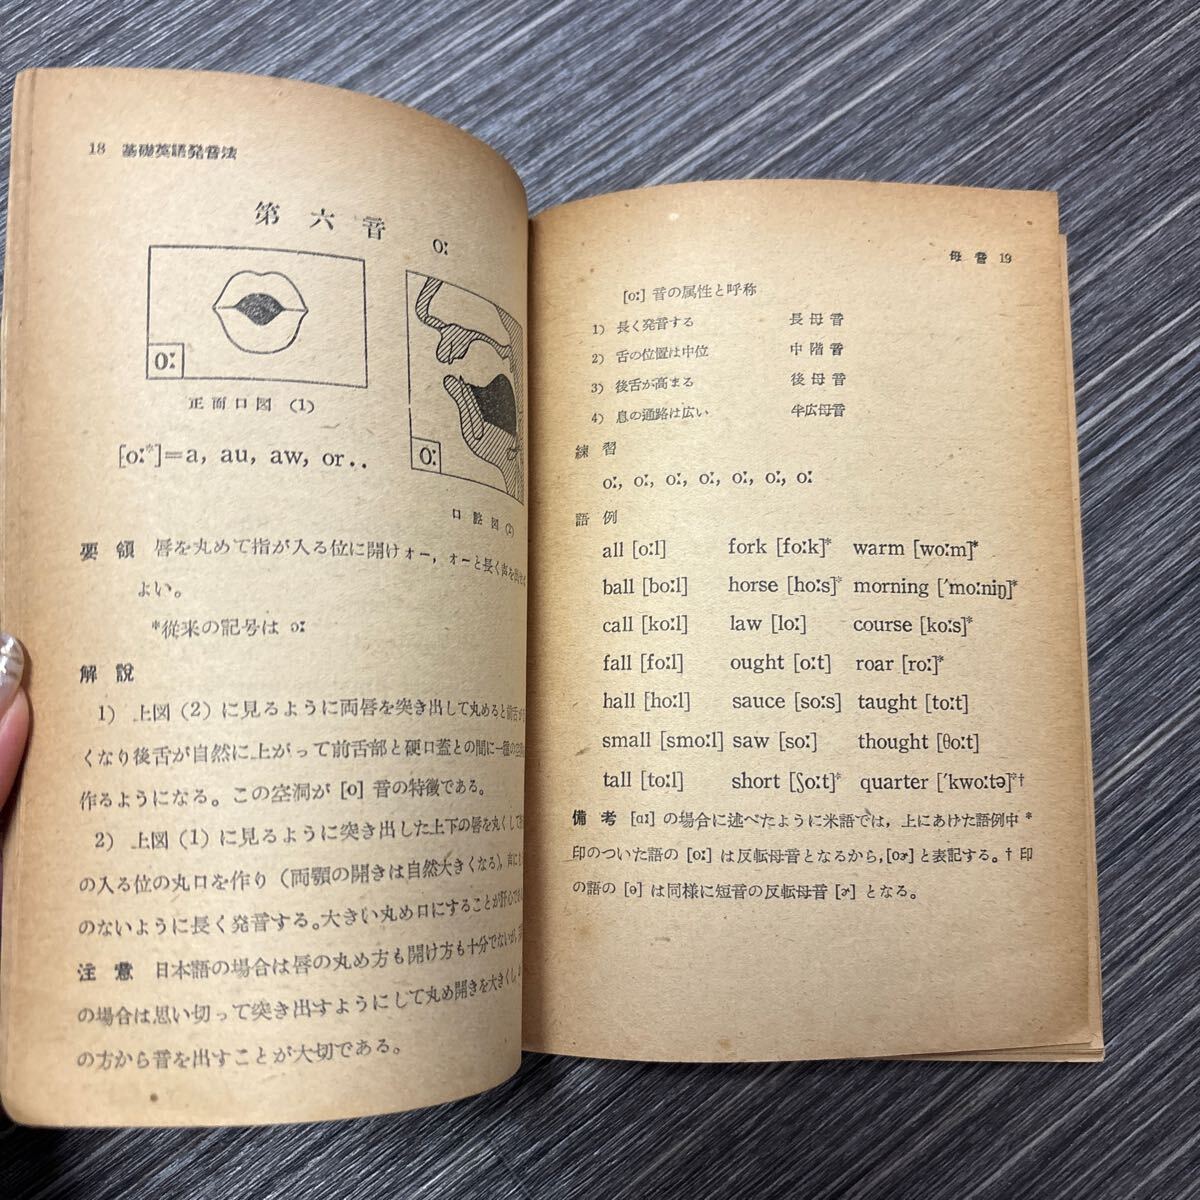 18 基礎英語発音法
第六音 oː
oː
正面口図 (1)
oː
口腔図 (2)
[oː*]=a, au, aw, or..
要領 唇を丸めて指が入る位に開けォー，ォーと長く声を
よい。
*従来の記号は ɔː
解說
1) 上図 (2) に見るように両唇を突き出して丸めると前舌が
くなり後舌が自然に上がって前舌部と硬口蓋との間に一種の空洞
作るようになる。この空洞が [o] 音の特徴である。
2) 上図 (1) に見るように突き出した上下の唇を丸くして
の入る位の丸口を作り (両顎の開きは自然大きくなる)，声に
のないように長く発音する。大きい丸め口にすることが肝心で
注意 日本語の場合は唇の丸め方も開け方も十分でないが，
の場合は思い切って突き出すようにして丸め開きを大きくし，
の方から音を出すことが大切である。
母音 19
[oː] 音の属性と呼称
1) 長く発音する 長母音
2) 舌の位置は中位 中階音
3) 後舌が高まる 後母音
4) 息の通路は広い 半広母音
練習
oː, oː, oː, oː, oː, oː, oː
語例
all [oːl] fork [foːk]* warm [woːm]*
ball [boːl] horse [hoːs]* morning ['moːniŋ]*
call [koːl] law [loː] course [koːs]*
fall [foːl] ought [oːt] roar [roː]*
hall [hoːl] sauce [soːs] taught [toːt]
small [smoːl] saw [soː] thought [θoːt]
tall [toːl] short [ʃoːt]* quarter ['kwoːtə]*†
備考 [ɑː] の場合に述べたように米語では，上にあけた語例中 *
印のついた語の [oː] は反転母音となるから，[oɚ] と表記する。† 印
の語の [ə] は同様に短音の反転母音 [ɚ] となる。